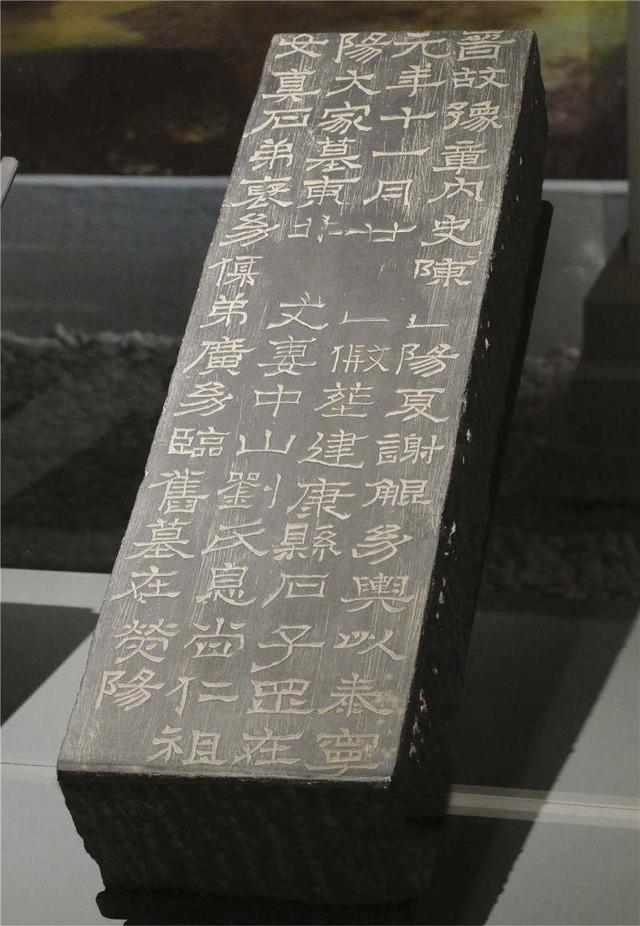 晉故豫章內史陳陽夏謝鯤幼輿以泰寧
元年十一月廿假葬建康縣石子罡在
陽大家墓東北丈妻中山劉氏息尚仁祖
女真石弟裒幼儒弟廣幼臨舊墓在熒陽